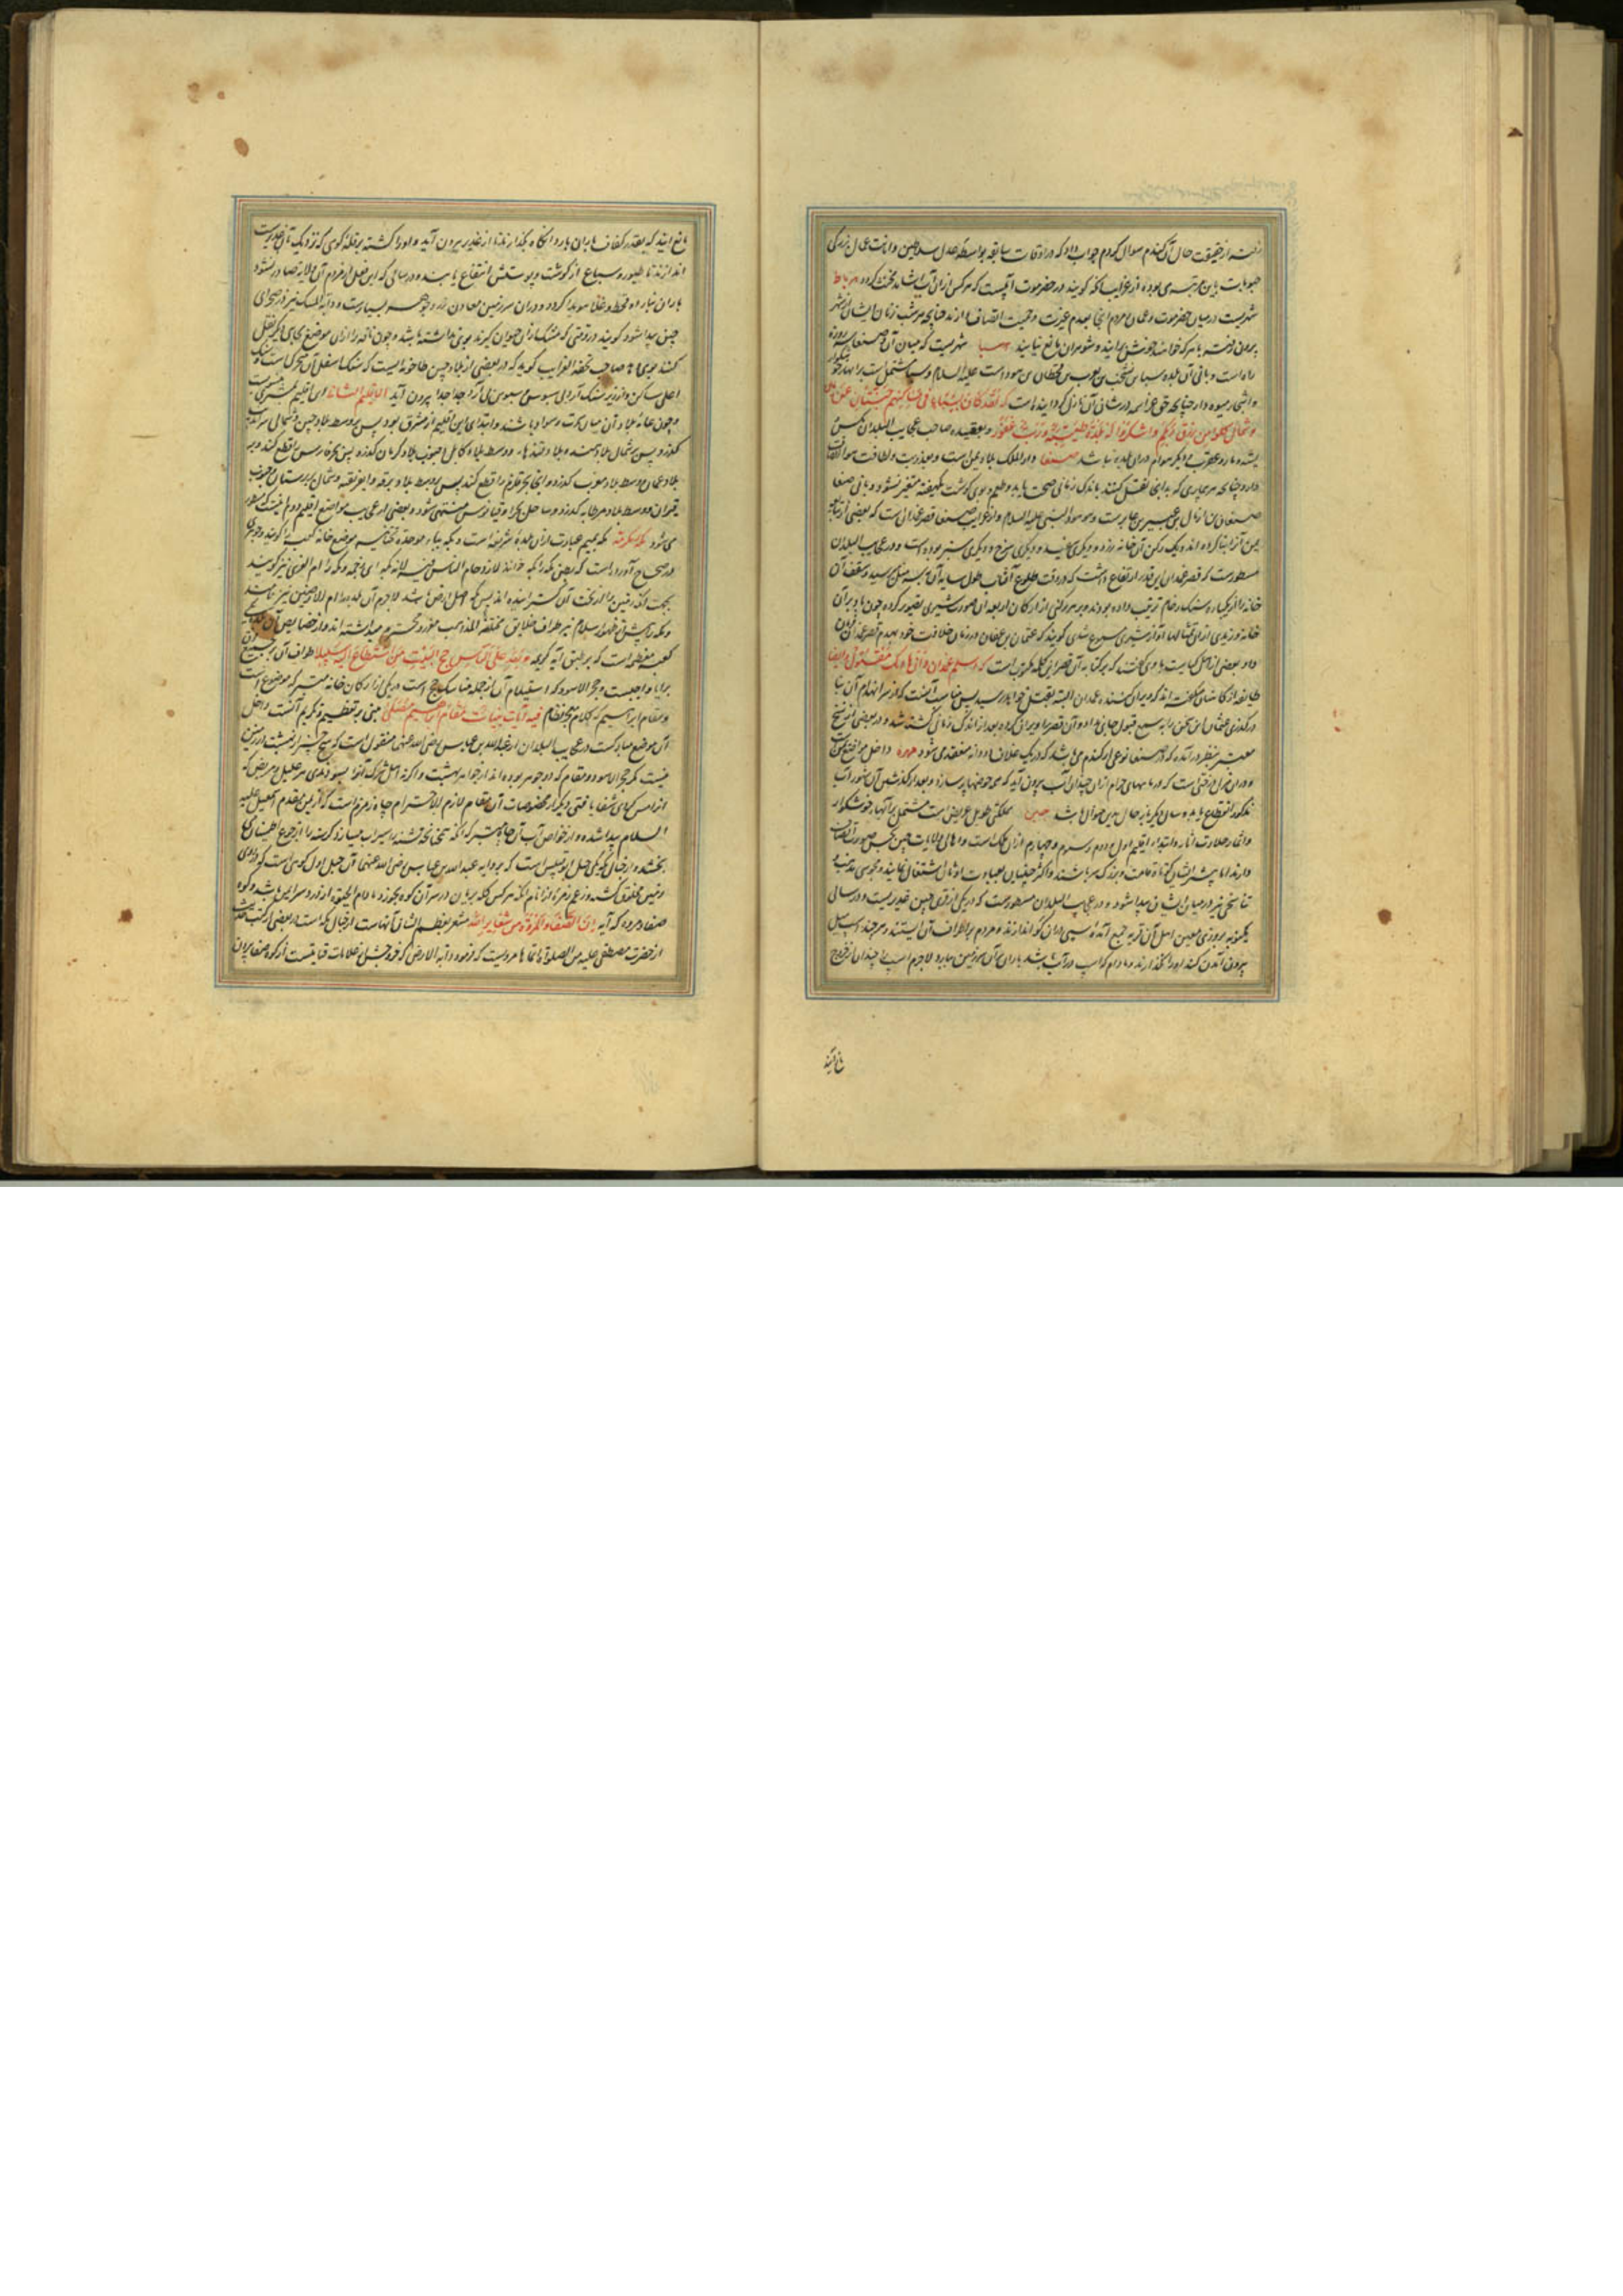 رفته از حقیقت حال آن گندم سوال کردم جواب داد که در اوقات سابقه بواسطه عدل سلاطین و امانت عمال بزرگی
حبوبات باین مرتبه می بوده از غرایب آنکه گویند در حضرموت آبیست که هر کس از آن آب بیاشامد مخنث گردد مرباط
شهریست در میان حضرموت و عمان مردم آنجا بعدم غیرت و حمیت اتصاف دارند چنانچه هر شب زنان ایشان از شهر
بیرون رفته با هر که خواهند خوش برآیند و شوهران مانع نیایند سبا شهریست که میان آن و صنعا سه روزه
راه است و بانی آن بلده سبا بن یشخب بن یعرب بن قحطان بن هود است علیه السلام و سبا مشتمل است بر انهار خوشگوار
و اشجار میوه دار چنانچه حق عز اسمه در شان آن نازل گردانیده است که لقد کان لسبا فی مسکنهم آیة جنتان عن یمین
و شمال کلوا من رزق ربکم و اشکروا له بلدة طیبة و رب غفور و بعقیده صاحب عجایب البلدان مگس
پشه و مار و عقرب و دیگر هوام در آن بلده نباشد صنعا دار الملک بلاد یمن است و بعذوبت و لطافت هوا اتصاف
دارد چنانچه هر بیماری که بدانجا نقل کنند باندک زمانی صحت یابد و طعم و بوی گوشت یکهفته متغیر نشود و بانی صنعا
صنعان بن ازال بن عیبر بن عابر است و هو هود النبی علیه السلام و از غرایب صنعا قصر غمدان است که بعضی از تبابعه
یمن آنرا بنا کرده اند و یک رکن آن خانه زرد و دیگری سفید و دیگری سرخ و دیگری سبز بوده است و در عجایب البلدان
مسطورست که قصر غمدان این قدر ارتفاع داشت که در وقت طلوع آفتاب طول سایه آن به سه میل میرسید و سقف آن
خانه را از یکپاره سنگ رخام ترتیب داده بودند و بر هر رکنی از ارکان اربعه آن صورت شیری تصویر کرده چون باد بر آن
خانه وزیدی از آن تمثالها آواز شیری مسموع شدی گویند که عثمان بن عفان در زمان خلافت خود بهدم قصر غمدان فرمان
داد بعضی از اهل کتابت با وی گفتند که بر کتابه آن قصر این کلمه مکتوبست که اسلم غمدان و انّ هادمک مقتول و ایضا
طایفه از کاهنان میگفته اند که ویران کننده غمدان البته بقتل خواهد رسید پس مناسب آنست که از سر انهدام آن بنا
درگذری عثمان این سخن را بسمع قبول جای نداد و آن قصر را ویران کرده بعد از اندک زمانی کشته شد و در بعضی از نسخ
معتبر بنظر درآمده که در صنعا نوعی از گندم می باشد که در یک غلاف دو دانه منعقد می شود مهره داخل مواضع یمن است
و در آن نواحی درختی است که در ماههای حرام از آن چندان آب بیرون آید که همه حوضها پر سازد و بعد از گذشتن آن شهور آب
مذکور انقطاع یابد و سال دیگر باز حال بدین منوال باشد چین مملکتی طویل عریض است مشتمل بر آبهای خوشگوار
و اثمار حلاوت آثار و ابتداء اقلیم اول و دوم و سوم و چهارم از آن ملک است و اهالی ولایات چین بحسن صورت اتصاف
دارند اما بیشتر ایشان کوتاه قامت و بزرگ سر باشند و اکثر چینیان بعبادت اوثان اشتغال نمایند و مجوسی مذهب و
تناسخی نیز در میان ایشان پیدا شود و در عجایب البلدان مسطورست که در یکی از قری چین غدیریست و در سالی
یکنوبه بروزی معین اهل آن قریه جمع آمده اسبی در آن گو اندازند و مردم بر اطراف آن ایستند و هر چند اسب میل
بیرون آمدن کند او را نگذارند و مادام که اسب در آب باشد باران بر آن سرزمین ببارد لاجرم اسب را چندان از خروج
مانع آیند
مانع آیند که بقدر کفاف باران بارد آنگاه بگذارند تا از غدیر بیرون آید و او را کشته بر قله کوهی که نزدیک بآن غدیرست
اندازند تا طیور و سباع از گوشت و پوستش انتفاع یابند و در سالی که این فعل از مردم آن ولایه صادر نشود
باران نبارد و قحط و غلا هویدا گردد و در آن سرزمین معادن زر و جوهر بسیارست و دابة المسک نیز در صحرای
چین پیدا شود گویند در وقتی که مشک را از آن حیوان گیرند بوی نداشته باشد و چون نافه را از آن موضع بجای دیگر نقل
کنند بوی دهد صاحب تحفة الغرایب گوید که در بعضی از بلاد چین طاحونه ایست که سنگ اسفل آن متحرک است و سنگ
اعلی ساکن و از زیر سنگ آرد بی سبوس و سبوس بی آرد جدا جدا بیرون آید الاقلیم الثانی این اقلیم بمشتری منسوبست
و چون عامه بلاد آن میان سمرت و سواد باشند و ابتدای این اقلیم از مشرق بود پس بر وسط بلاد چین و شمالی سراندیب
گذرد پس بر شمال بلاد هند و بلاد قندهار و وسط بلاد کابل و جنوب بلاد کرمان گذرد پس بحر فارس را قطع کند و بر
بلاد عمان و وسط بلاد مغرب گذرد و اینجا بحر قلزم را قطع کند پس بر وسط بلاد برقه و افریقیه و شمال بربرستان و جنوب
قیروان و وسط بلاد مرطانه گذرد و بساحل بحر اوقیانوس منتهی شود و بعضی از عجایب مواضع اقلیم دوم اینست که مسطور
می شود مکه مکرمه مکه بمیم عبارت از آن بلده شریفه است و بکه بباء موحده تحتانیه موضع خانه کعبه را گویند و جوهری
در صحاح آورده است که بطن مکه را بکه خوانند لازدحام الناس فیه لانه بکه ای زحمه و مکه را ام القری نیز گویند
بجهت آنکه زمین را از تحت آن گسترانیده اند پس مکه اصل ارض باشد لاجرم آن بلده را ام الارضین نیز نامند
و مکه پیش از ظهور اسلام نیز مطاف خلایق مختلفة المذاهب و موقر و محترم میداشته اند و از خصایص آن بلده
کعبه معظمه است که بر طبق آیه کریمه و لله علی الناس حج البیت من استطاع الیه سبیلا طواف آن بر جمیع
برایا واجبست و حجر الاسود که استیلام آن از جمله مناسک حج است در یکی از ارکان خانه متبرکه موضوع است
و مقام ابراهیم که کلام معجز نظام فیه آیات بینات مقام ابراهیم مصلی مبنی بر تعظیم و تکریم آنست داخل
آن موضع مبارکست در عجایب البلدان از عبدالله بن عباس رضی الله عنهما منقول است که هیچ چیز از بهشت در زمین
نیست مگر حجر الاسود و مقام که دو جوهر بوده اند از جواهر بهشت و اگر نه اهل شرک آنرا بسودندی هر علیل و مریض که
از لمس کردی شفا یافتی و دیگر از مخصوصات آن مقام لازم الاحترام چاه زمزم است که از یمن مقدم اسمعیل علیه
السلام پیدا شده و از خواص آب آن چاه متبرکه آنکه تشنه را سیراب میسازد و گرسنه را از جوع اطمینان
بخشد و از جبال مکه یکی جبل ابوقبیس است که بروایه عبدالله بن عباس رضی الله عنهما آن جبل اول کوهی است که در روی
زمین مخلوق گشته و بزعم زمره از انام آنکه هر کس کله بریان در سر آن کوه بخورد مادام الحیوة از درد سر ایمن باشد و کوه
صفا و مروه که آیه ان الصفا و المروة من شعایر الله مشعر بعظم الشان آنهاست از جبال مکه است در بعضی از کتب
از حضرت مصطفی علیه من الصلوة اتمها مرویست که فرمود دابة الارض که خروجش از علامات قیامتست از کوه صفا بیرون